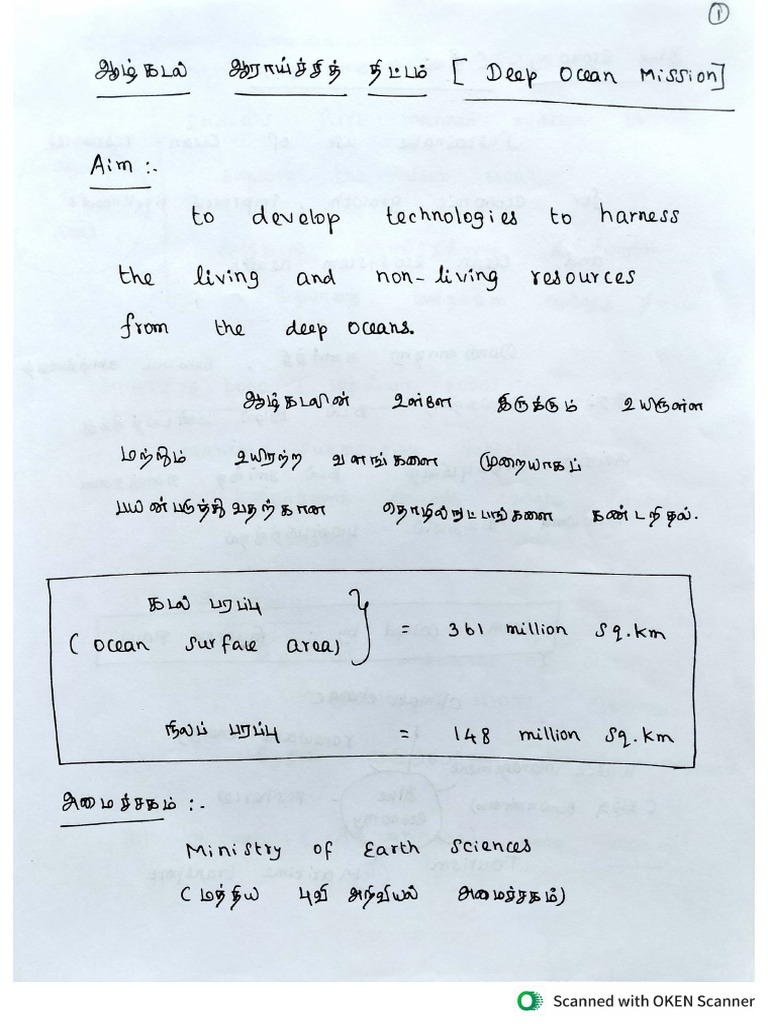 1
ஆழ்கடல் ஆராய்ச்சித் திட்டம் [ Deep Ocean Mission]
Aim :-
to develop technologies to harness
the living and non-living resources
from the deep oceans.
ஆழ்கடலின் உள்ளே இருக்கும் உயிருள்ள
மற்றும் உயிரற்ற வளங்களை முறையாகப்
பயன்படுத்துவதற்கான தொழில்நுட்பங்களை கண்டறிதல்.
கடல் பரப்பு
( ocean surface area) } = 361 million sq.km
நிலப் பரப்பு = 148 million sq.km
அமைச்சகம் :-
Ministry of Earth Sciences
(மத்திய புவி அறிவியல் அமைச்சகம்)
Scanned with OKEN Scanner